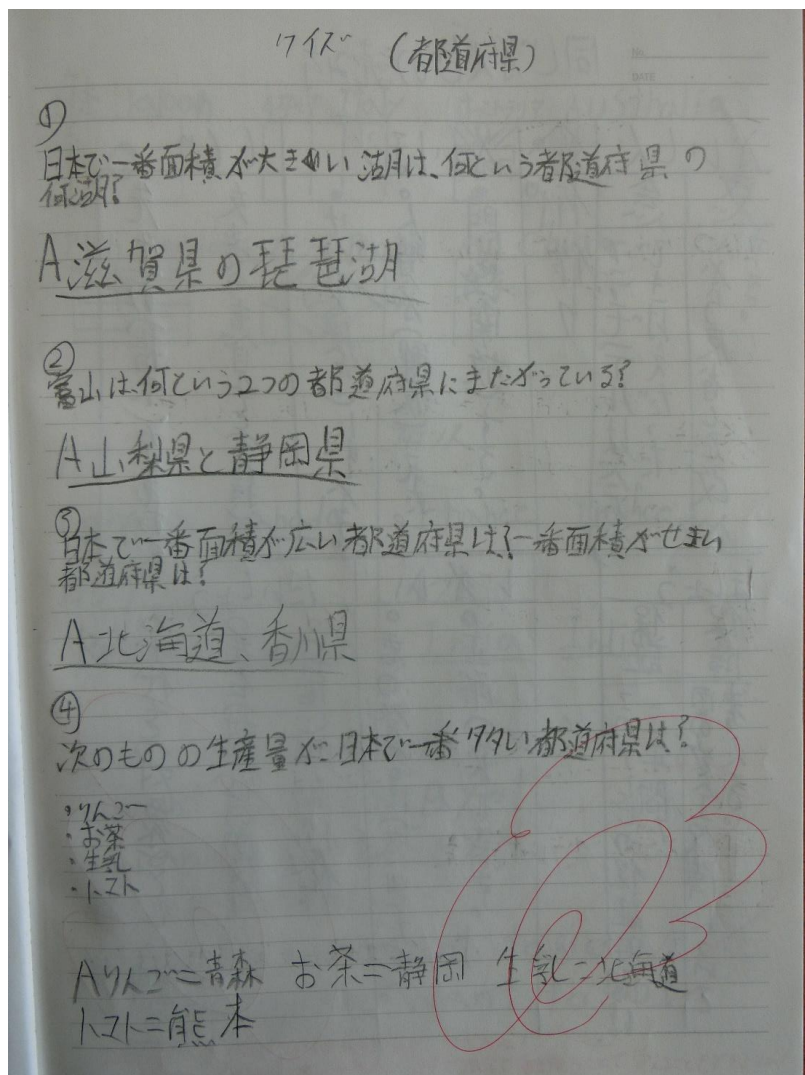 クイズ （都道府県）
①
日本で一番面積が大きい湖は、何という都道府県の
何湖？
A 滋賀県の琵琶湖
②
富山は何という2つの都道府県にまたがっている？
A 山梨県と静岡県
③
日本で一番面積が広い都道府県は？一番面積がせまい
都道府県は？
A 北海道、香川県
④
次のものの生産量が日本で一番多い都道府県は？
・りんご
・お茶
・生乳
・トマト
A りんご＝青森 お茶＝静岡 生乳＝北海道
トマト＝熊本